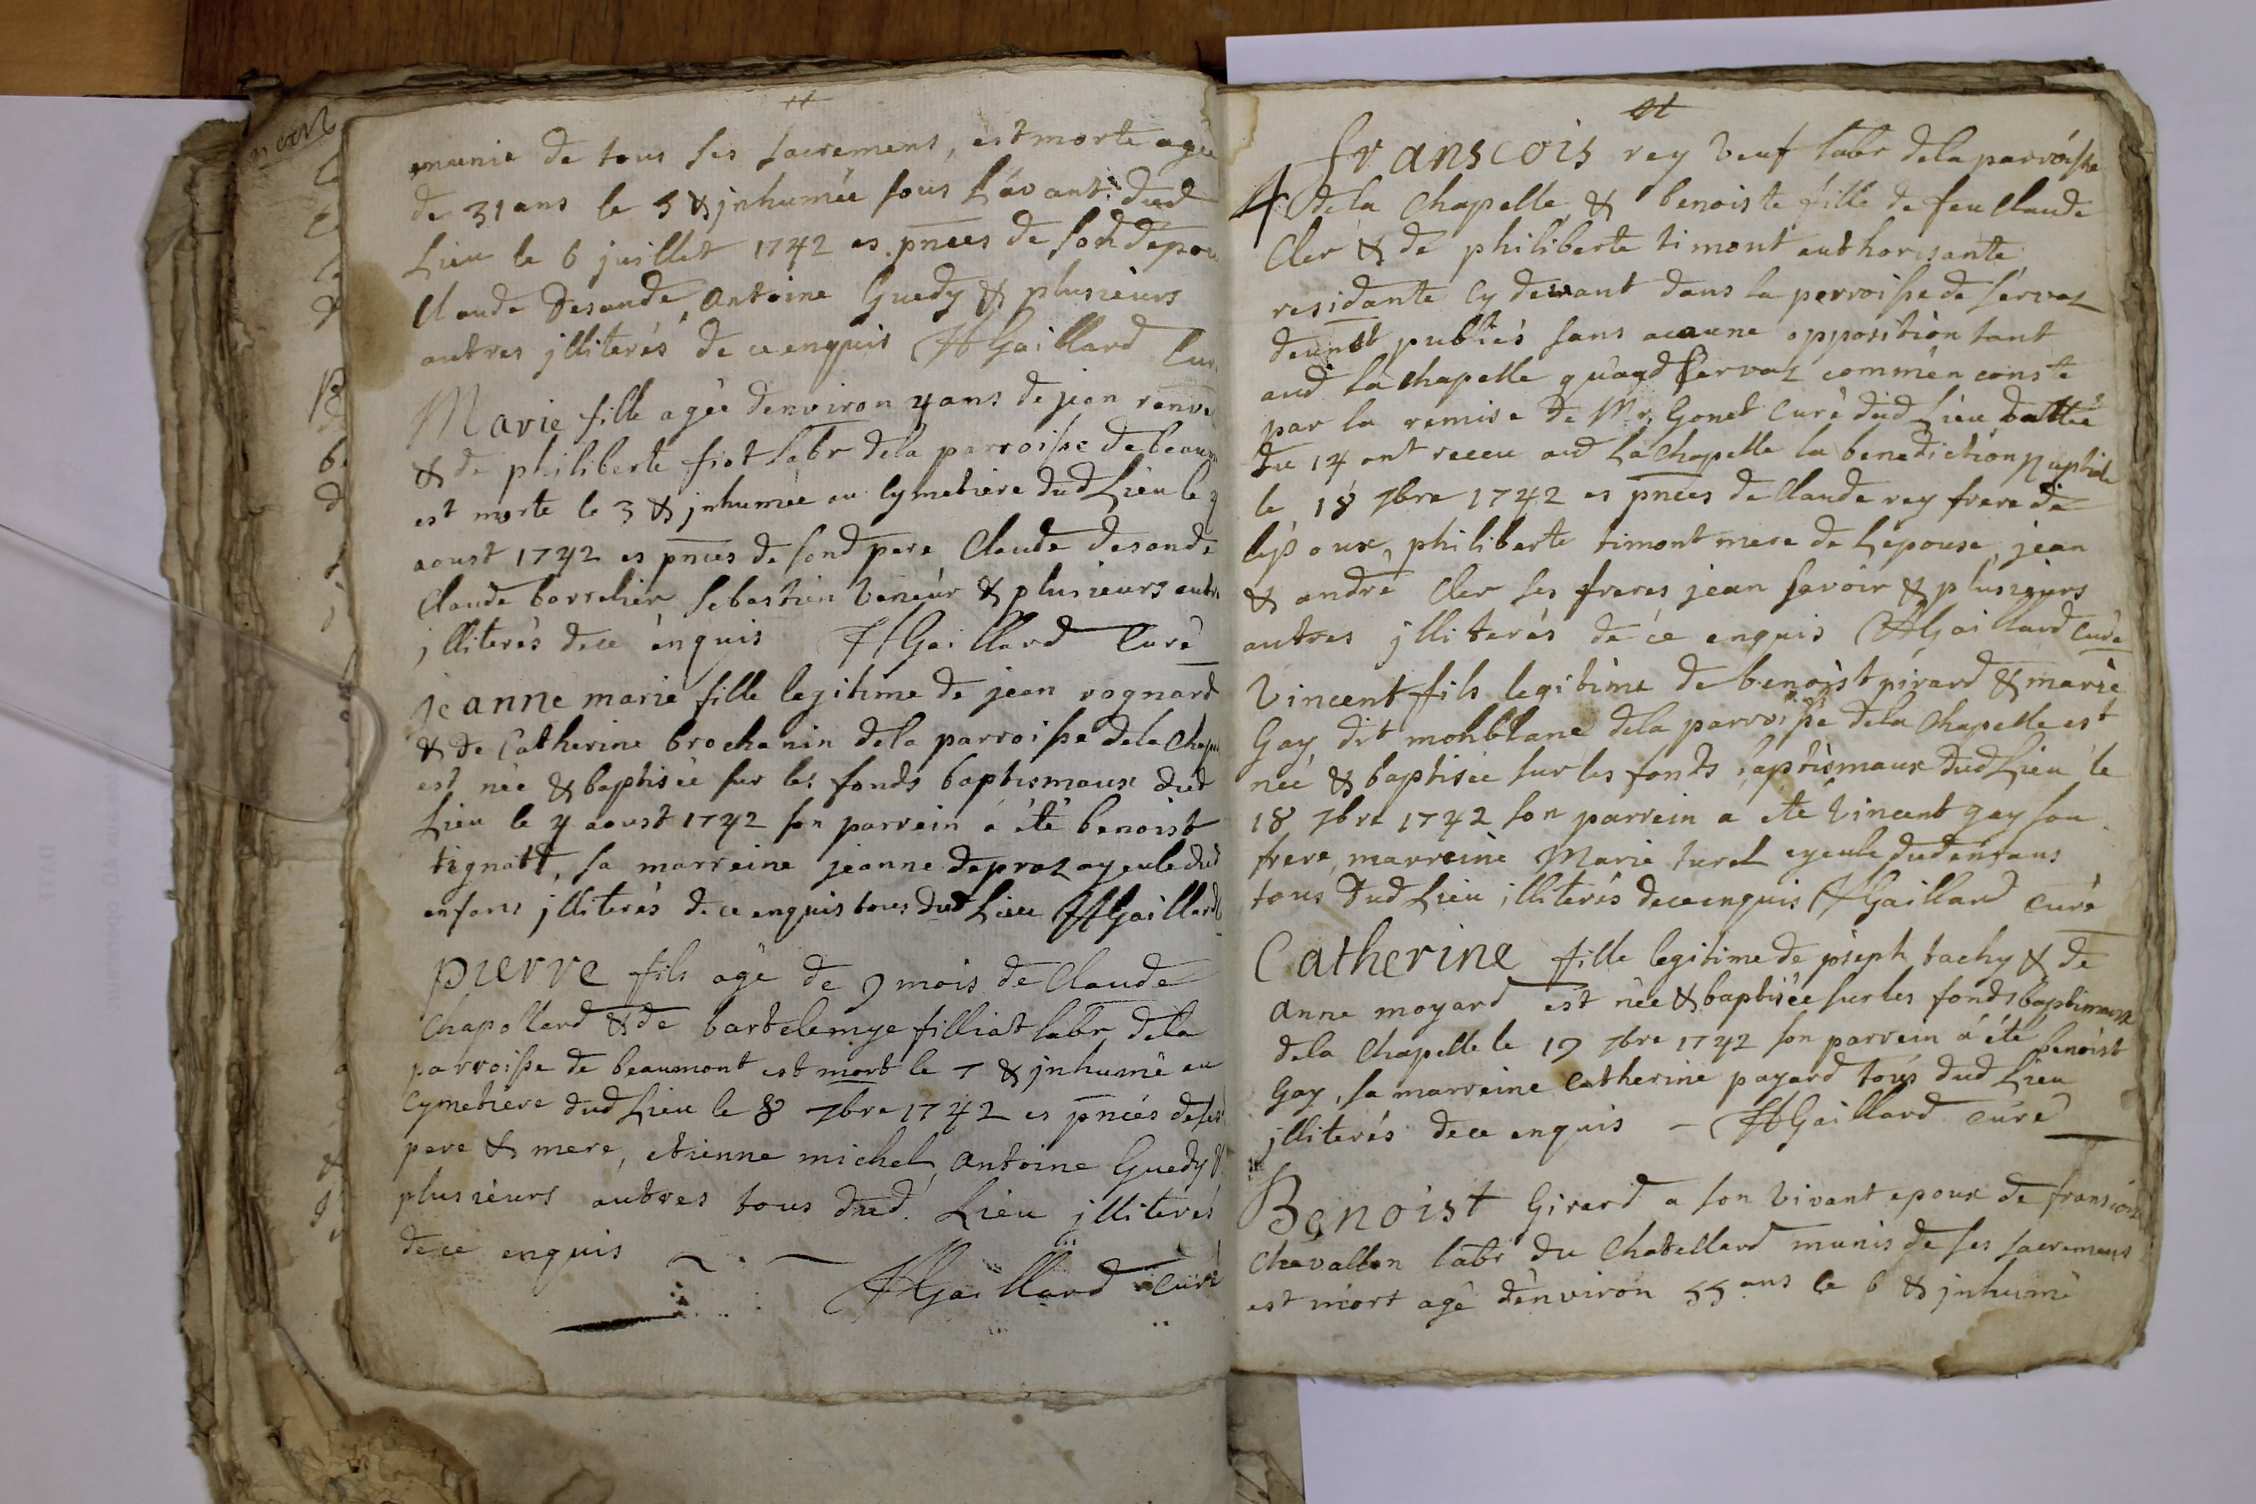 munie de tous ses sacremens, est morte agée
de 31 ans le 5 & jnhumée sous L'avant. dud
Lieu le 6 juillet 1742 es pnces de sond
Claude Desande, Antoine Guedy & plusieurs
autres jlliterés de ce enquis HGaillard Cur
Marie fille agée denviron 4 ans de jean
& de philiberte fiot labr dela parroisse de
est morte le 3 & jnhumée au Cymetiere dud Lieu le 4
aoust 1742 es pnces de sond pere Claude desande
Claude borrelier, sebastien Veneur & plusieurs autr
jlliterés dece enquis HGaillard Curé
jeanne marie fille legitime de jean rognard
& de Catherine brochanin dela parroisse dela Chap
est née & baptisée sur les fonds baptismaux dud
Lieu le 4 aoust 1742 son parrein a été benoist
tignatt, sa marreine jeanne depraz ayeule dud
enfans jlliterés de ce enquis tous dud Lieu HGaillard
pierre fils agé de 9 mois de Claude
Chapollard & de bartelemye filliat labr dela
parroisse de beaumont est mort le 7 & jnhumé au
Cymetiere dud Lieu le 8 7bre 1742 es pnces de ses
pere & mere, etienne michel, Antoine Guedy &
plusieurs autres tous dud. Lieu jlliterés
de ce enquis
HGaillard Curé
4 franscois rey Veuf labr dela parroisse
dela Chapelle & benoiste fille de feu Claude
Cler & de philiberte timont authorisante
residante Cy devant dans la perroisse de servaz
deunt publiés sans aucune opposition tant
aud la chapelle qu'aud servaz comm'en conste
par la remise de Mr. Gonet Curé dud Lieu dattée
du 14 ont receu aud La chapelle la benediction nuptiale
le 18 7bre 1742 es pnces de Claude rey frere de
lepoux, philiberte timont mere de L'epouse, jean
& andré Cler ses freres jean savoir & plusieurs
autres jlliterés de ce enquis HGaillard Curé
Vincent fils legitime de benoist pirard & marie
Gay dit monblanc dela parroisse dela Chapelle est
née & baptisée sur les fonds baptismaux dud Lieu le
18 7bre 1742 son parrein a ete Vincent gay son
frere, marreine Marie turel eyeule dud enfans
tous dud Lieu jlliterés de ce enquis HGaillard Curé
Catherine fille legitime de joseph tachy & de
anne moyard est née & baptisée sur les fonds baptismaux
dela Chapelle le 19 7bre 1742 son parrein a été benoist
Gay, sa marreine Catherine payard tous dud Lieu
jlliterés de ce enquis - HGaillard Curé
Benoist Girard a son Vivant epoux de franscoise
Chevallon labr du Chatellard munis de ses sacremens
est mort agé d'environ 55 ans le 6 & jnhumé